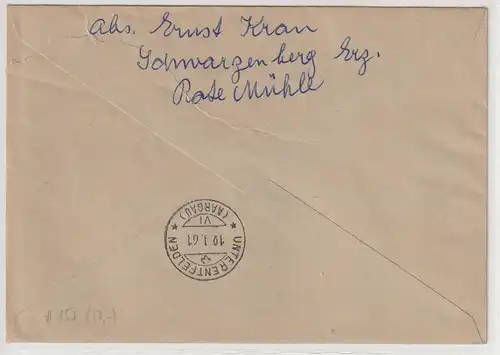 Abs. Ernst Kran
Schwarzenberg Erz.
Rote Mühle
(AARGAU)
VI
19.1.61
* UNTERENTFELDEN *